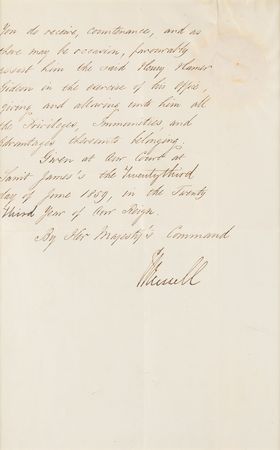 You do receive, countenance, and as
there may be occasion, favourably
assist him the said Henry Hamer
in the exercise of his Office,
giving and allowing unto him all
the Privileges, Immunities, and
advantages thereunto belonging.
Given at Our Court at
Saint James's the Twenty third
day of June 1859, in the Twenty
third Year of Our Reign.
By Her Majesty's Command
JRussell